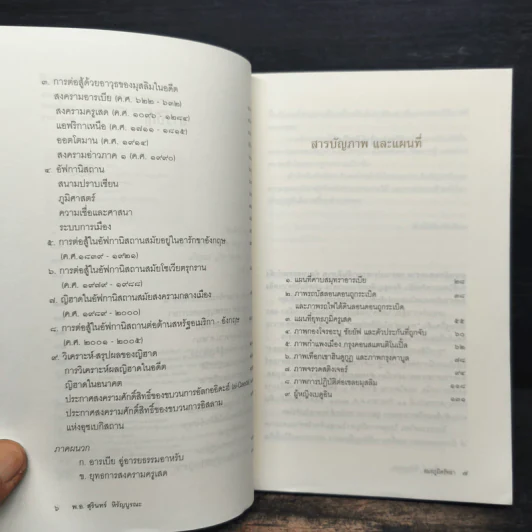 ๓. การต่อสู้ด้วยอาวุธของมุสลิมในอดีต
สงครามอารเบีย (ค.ศ. ๖๒๒ - ๖๓๒)
สงครามครูเสด (ค.ศ. ๑๐๙๖ - ๑๒๘๔)
แอฟริกาเหนือ (ค.ศ. ๑๗๑๑ - ๑๘๑๕)
ออตโตมาน (ค.ศ. ๑๙๑๔)
สงครามอ่าวภาค ๑ (ค.ศ. ๑๙๙๐)
๔. อัฟกานิสถาน
สนามปราบเซียน
ภูมิศาสตร์
ความเชื่อและศาสนา
ระบบการเมือง
๕. การต่อสู้ในอัฟกานิสถานสมัยอยู่ในอารักขาอังกฤษ
(ค.ศ.๑๘๓๙ - ๑๙๒๑)
๖. การต่อสู้ในอัฟกานิสถานสมัยโซเวียตรุกราน
(ค.ศ. ๑๙๗๙ - ๑๙๘๘)
๗. ญิฮาดในอัฟกานิสถานสมัยสงครามกลางเมือง
(ค.ศ. ๑๙๘๙ - ๒๐๐๐)
๘. การต่อสู้ในอัฟกานิสถานต่อต้านสหรัฐอเมริกา - อังกฤษ
(ค.ศ. ๒๐๐๑ - ๒๐๐๕)
๙. วิเคราะห์-สรุปผลของญิฮาด
การวิเคราะห์ผลญิฮาดในอดีต
ญิฮาดในอนาคต
ประกาศสงครามศักดิ์สิทธิ์ของขบวนการอัลกออิดะห์
ประกาศสงครามศักดิ์สิทธิ์ของขบวนการอิสลาม
แห่งอุซเบกิสถาน
ภาคผนวก
ก. อารเบีย อู่อารยธรรมอาหรับ
ข. ยุทธการสงครามครูเสด
๖ พ.อ. สุรินทร์ หิรัญบูรณะ
สารบัญภาพ และแผนที่
๑ แผนที่คาบสมุทรอาระเบีย ๒๘
๒ ภาพรถบัสลอนดอนถูกระเบิด ๓๘
และภาพรถไฟใต้ดินลอนดอนถูกระเบิด
๓ แผนที่ยุทธภูมิครูเสด ๕๕
๔ ภาพกองโจรอะบู ซัยยัฟ และตัวประกันที่ถูกจับ
๕ ภาพกำแพงเมือง กรุงคอนสแตนติโนเปิ้ล
๖ ภาพเทือกเขาฮินดูกูฏ และภาพกรุงคาบูล ๗๘
๗ ภาพจรวดสติงเจอร์
๘ ภาพการปฏิบัติต่อเชลยมุสลิม
๙ ผู้หญิงเบดูอิน
๗